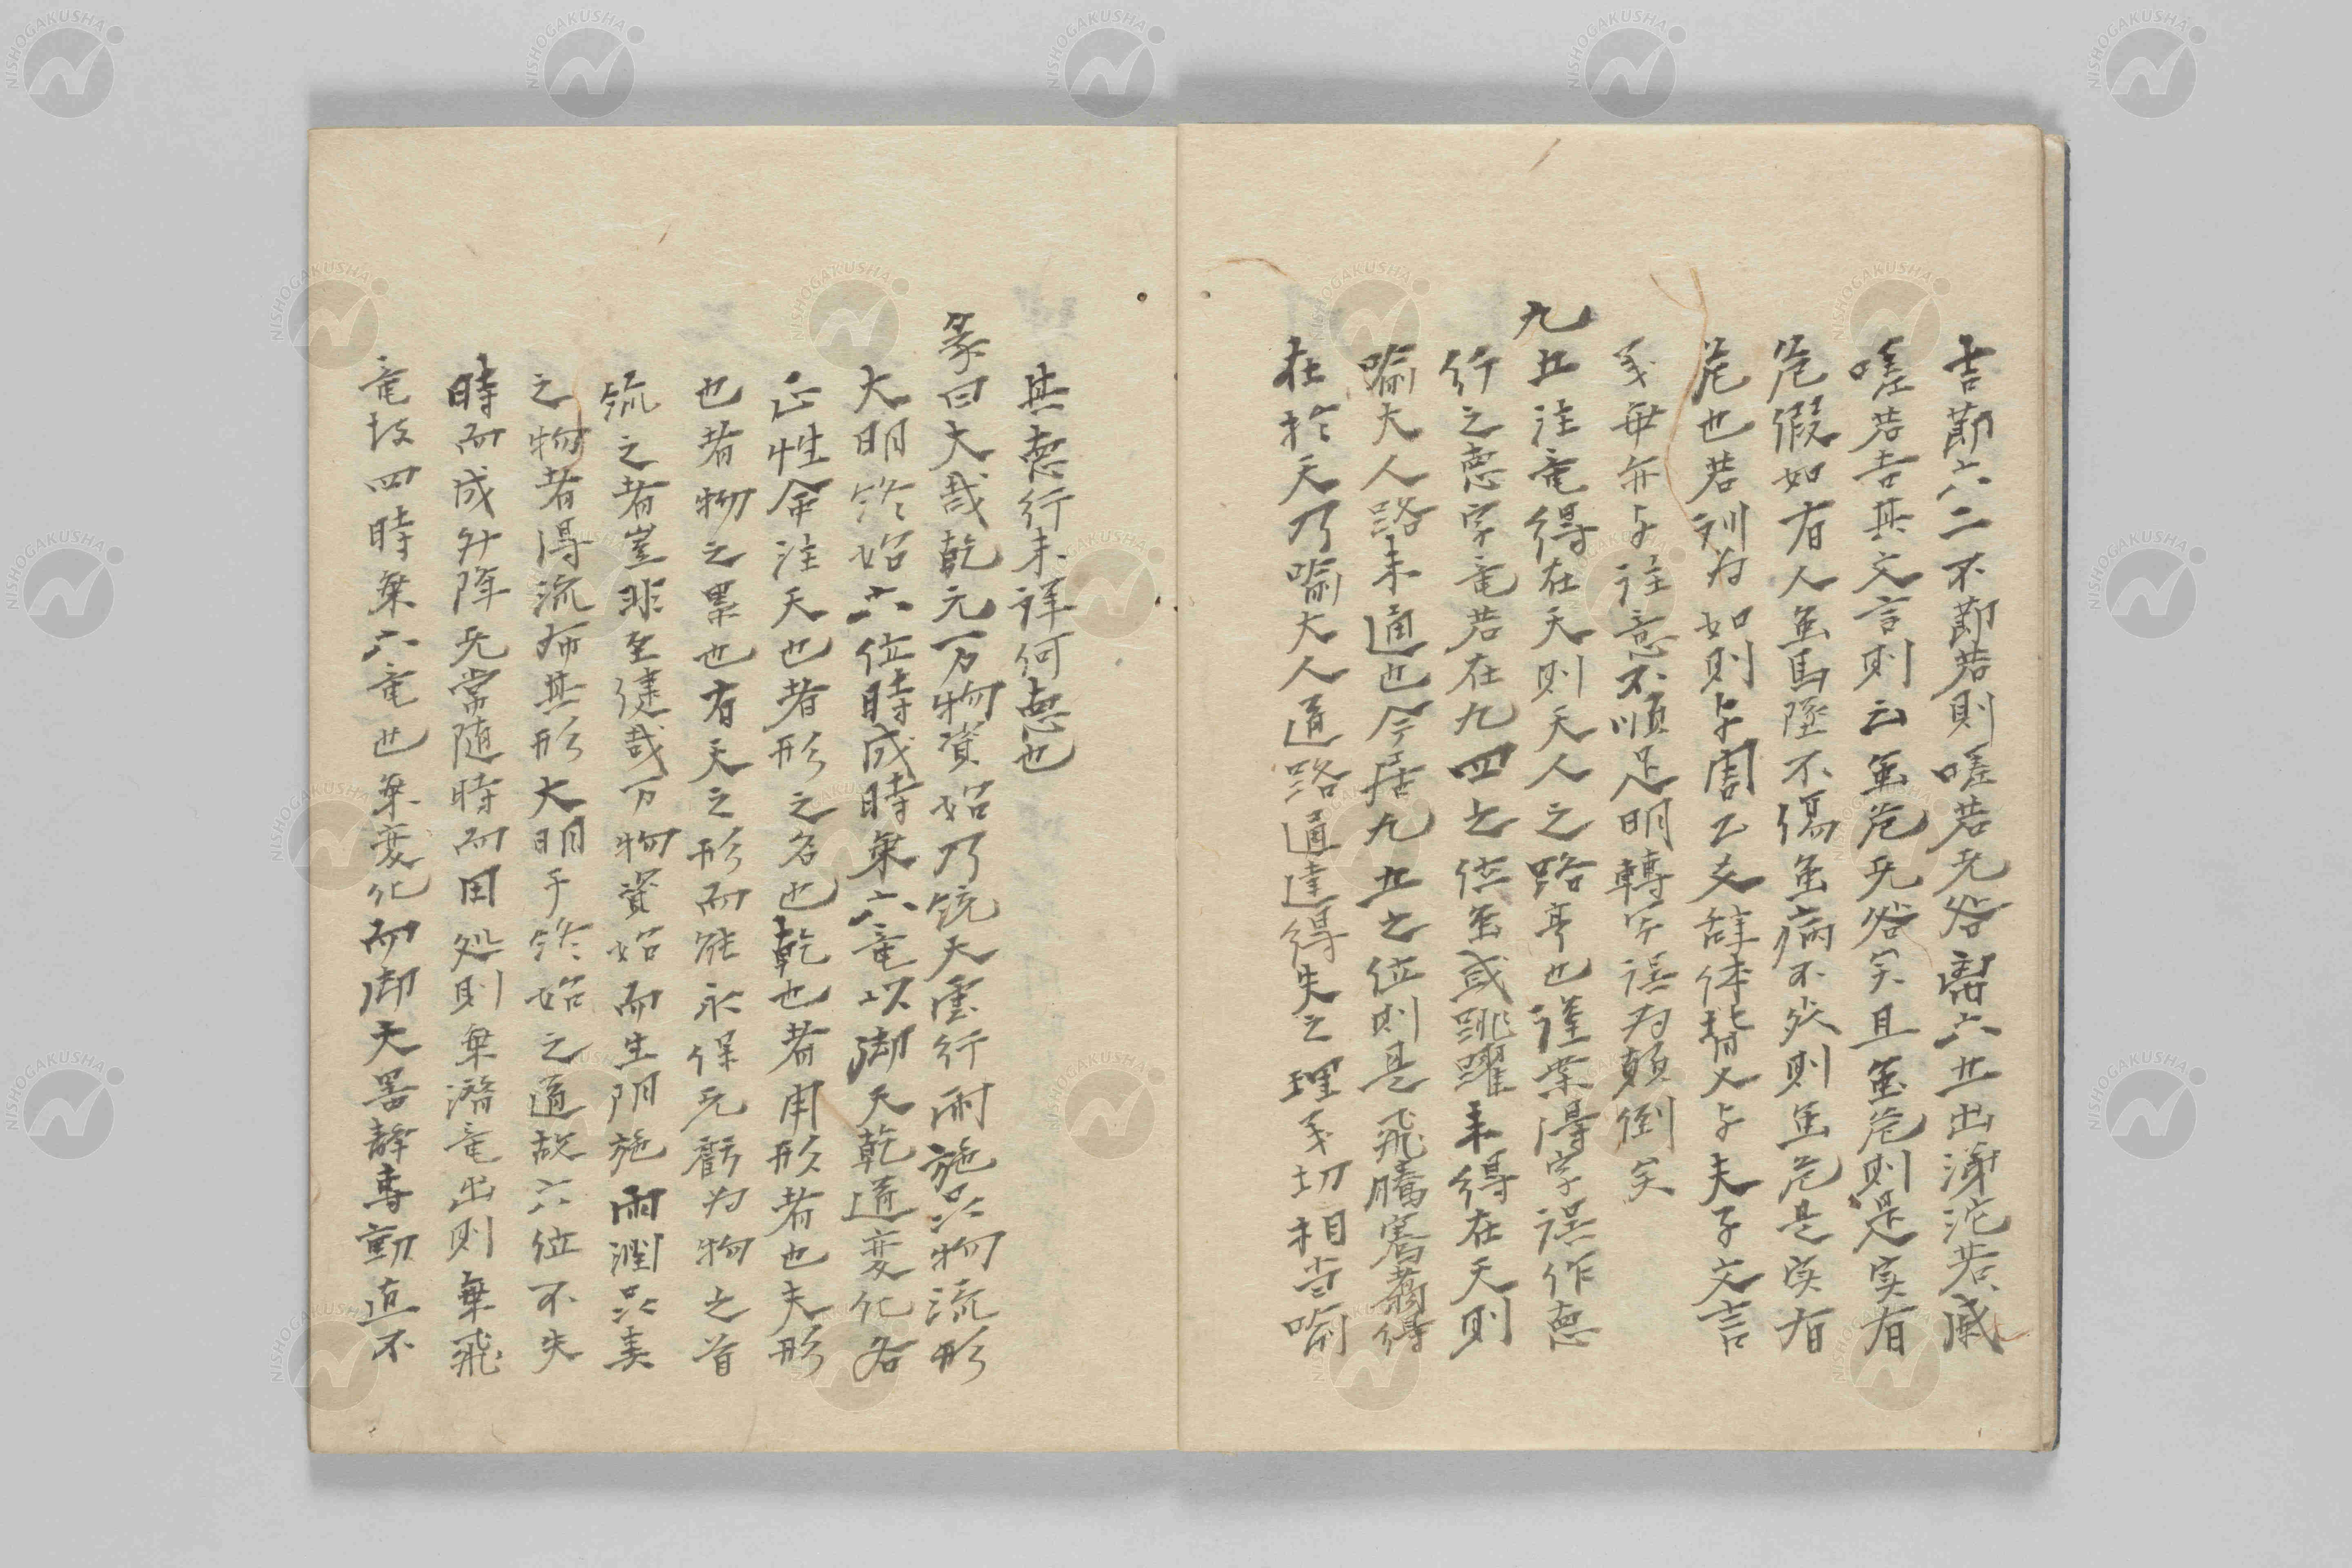 吉節六二不節若則嗟若无咎離六五出涕沱若戚
嗟若吉其文言則云虽危无咎矣且虽危則是实有
危假如有人虽馬墜不傷虽病不然則虽危是实有
危也若訓为如則与周公爻辞体背又与夫子文言
義毎毎与注意不順足明轉字誤为顛倒矣
九五注竜得在天則天人之路亨也謹案得字誤作悳
行之悳字竜若在九四之位虽或跳躍未得在天則
喻大人路未通也今居九五之位則是飛騰騫翥得
在於天乃喻大人道路通達得失之理義切相当喻
其悳行未詳何悳也
彖曰大哉乾元万物資始乃統天雲行雨施品物流形
大明終始六位時成時乗六竜以御天乾道変化各
正性命注天也者形之名也乾也者用形者也夫形
也者物之累也有天之形而能永保无虧为物之首
統之者豈非至健哉万物資始而生阴施雨潤品类
之物者得流布其形大明乎終始之道故六位不失
時而成升降无常随時而用処則乗潜竜出則乗飛
竜故四時乗六竜也乗変化而御天噐静専動直不